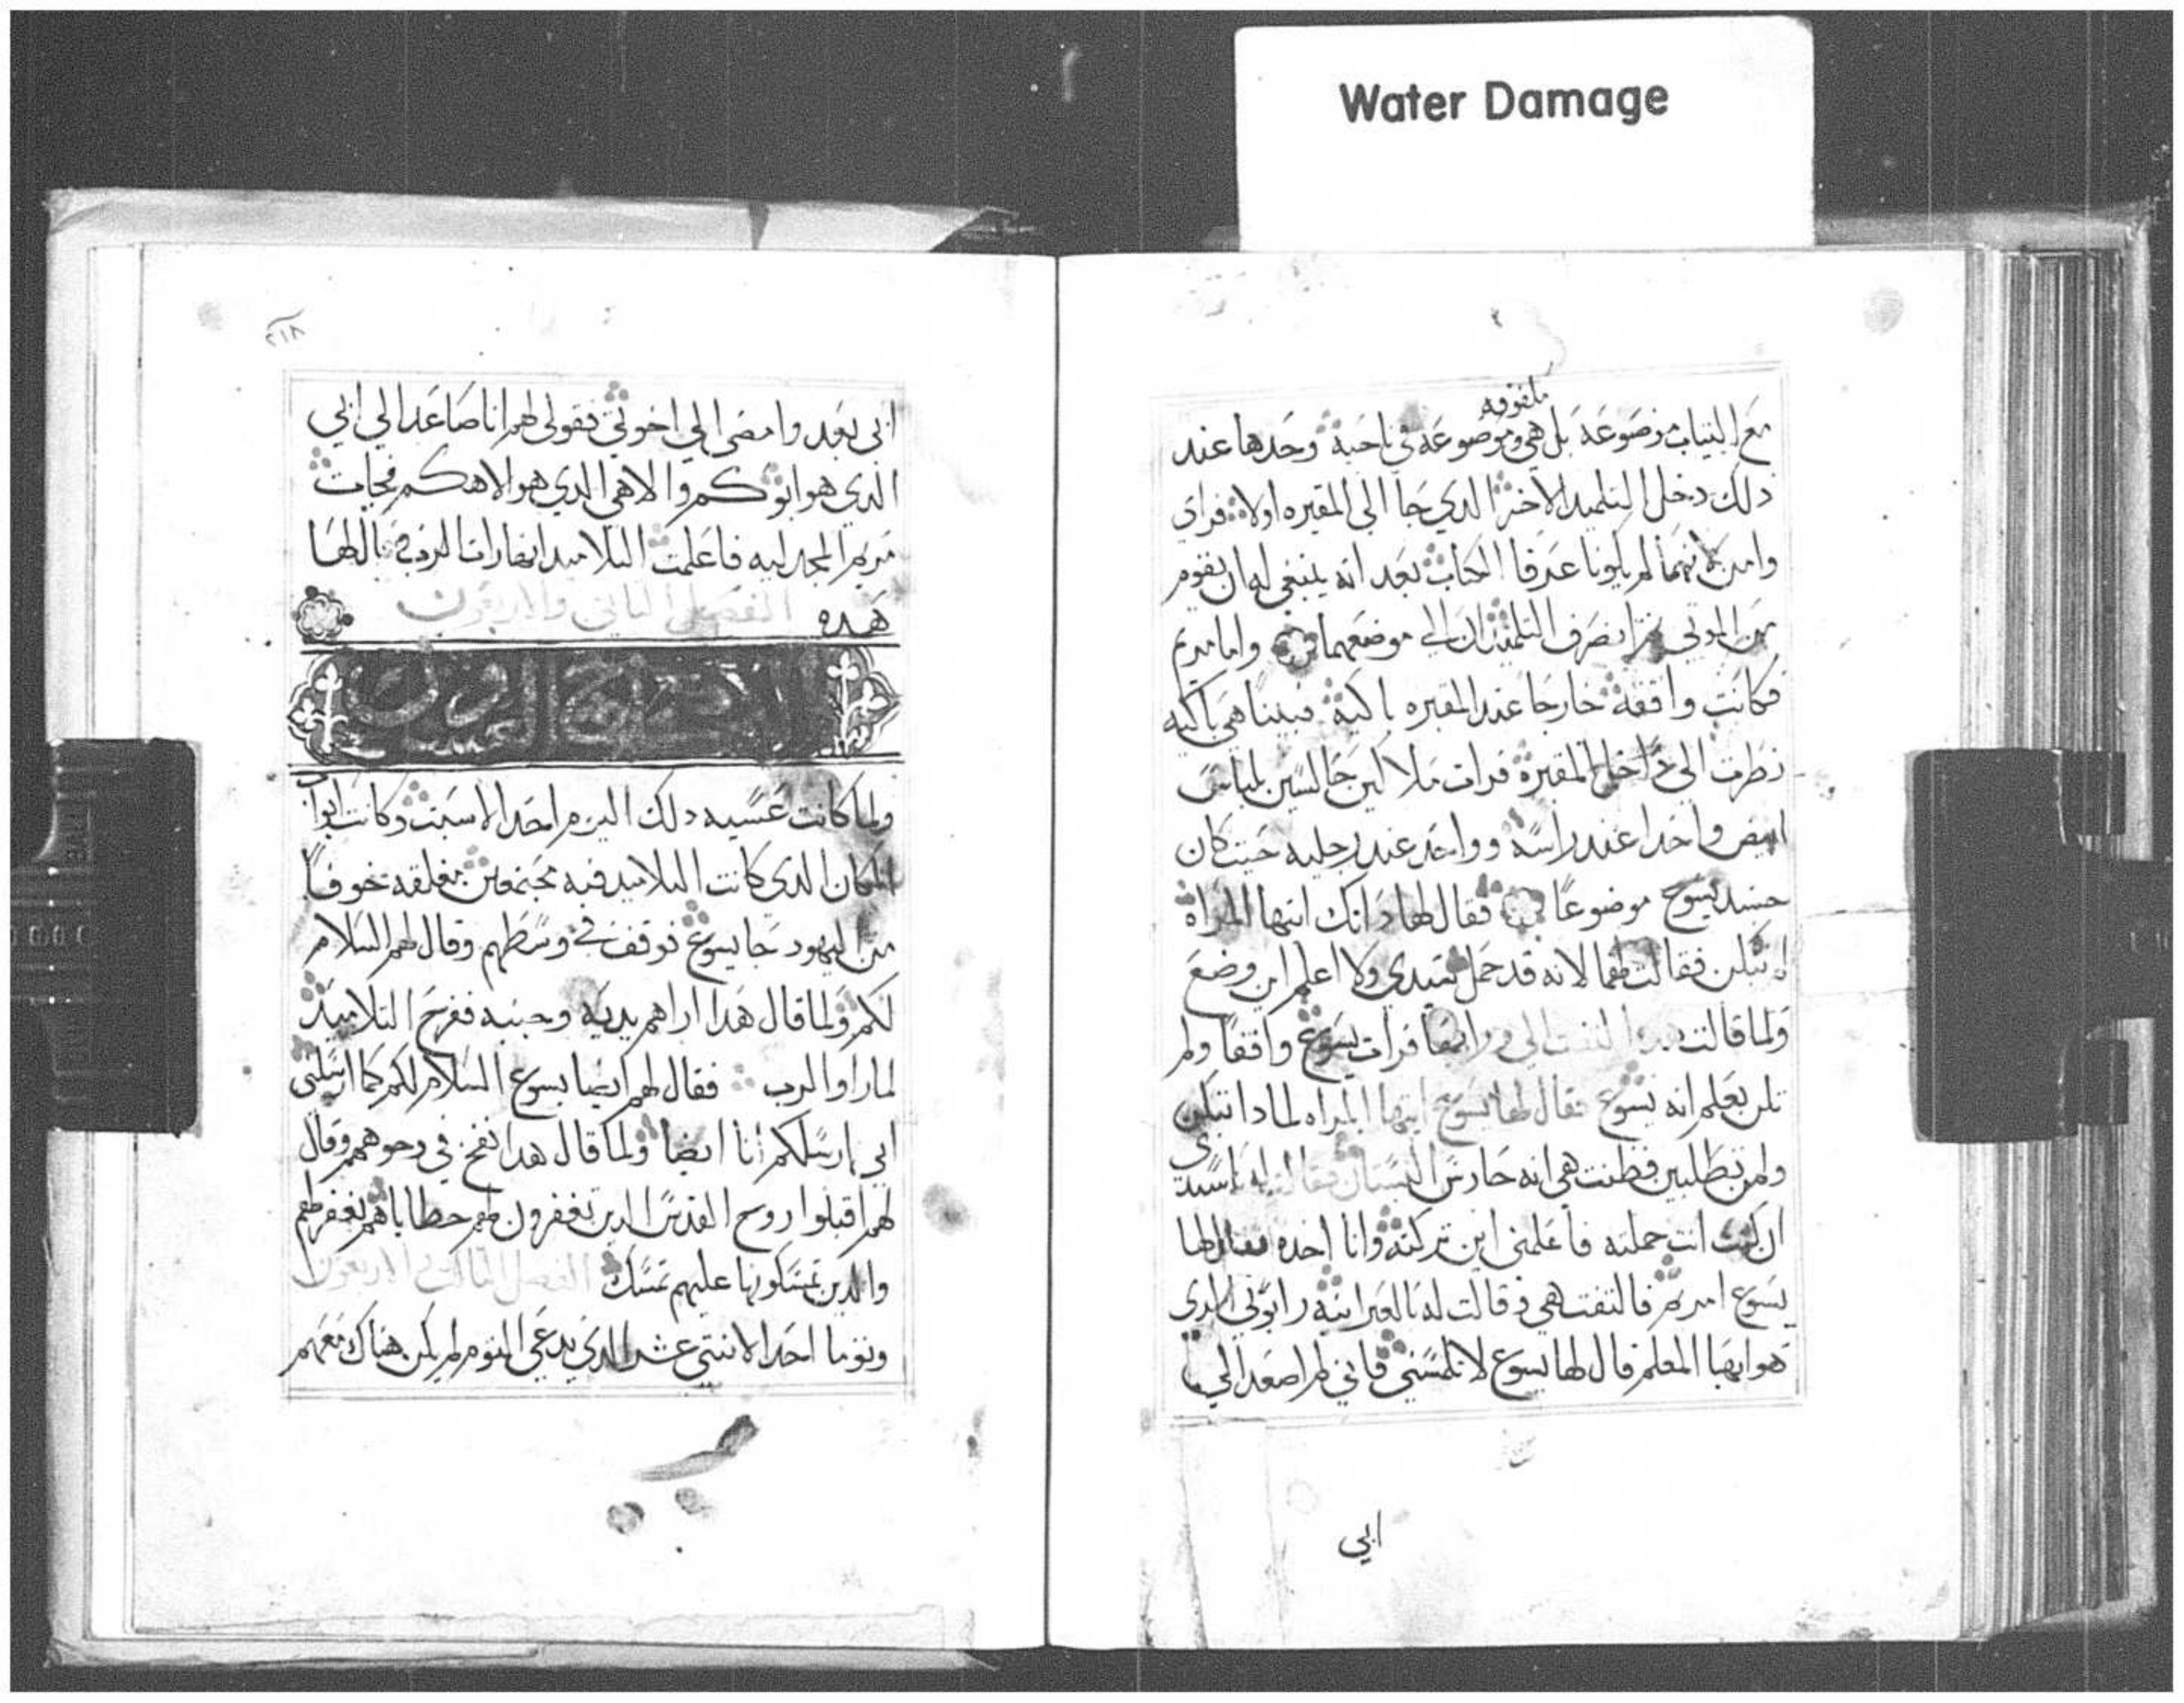 Water Damage
ملفوفه
مع الثياب موضوعة بل هي وموضوعه في ناحية وحدها عند
دلك دخل التلميد الاخر الدي جا الي المقبره اولا فراي
وامن لانهما لم يكونا عرفا الكتاب بعد انه ينبغي له ان يقوم
من الموتي ثم انصرف التلميدان الي موضعهما واما مريم
فكانت واقفة خارجا عند المقبره باكية فبينا هي باكيه
نظرت الي داخل المقبرة فرات ملاكين جالسين بلباس
ابيض واحدا عند راسه وواحد عند رجليه حيث كان
جسد يسوع موضوعا فقال لها دانك ايتها المراه
لم تبكين فقالت لهما لانه قد حمل سيدي ولا اعلم اين وضع
ولما قالت هدا التفتت الي ورايها فرات يسوع واقفا ولم
تكن تعلم انه يسوع فقال لها يسوع ايتها المراه لمادا تبكين
ولمن تطلبين فظنت هي انه حارس البستان فقالت له ياسيدي
ان كنت انت حملته فاعلمني اين تركته وانا اخده فقال لها
يسوع امريم فالتفتت هي وقالت له بالعبرانية رابوني الدي
هو ايها المعلم قال لها يسوع لا تلمسني فاني لم اصعد الي
ابي
٢١٨
ابي بعد وامضي الي اخوتي فقولي لهم انا صاعد الي ابي
الدي هو ابوكم والاهي الدي هو الاهكم فجات
مريم المجدليه فاعلمت التلاميد انها رات الرب وقال لها
هده الفصل الثاني والاربعون
ولما كانت عشيه دلك اليوم احد الاسبت وكانت ابواب
المكان الدي كانت التلاميد فيه مجتمعين مغلقه خوفا
من اليهود جا يسوع فوقف في وسطهم وقال لهم السلام
لكم ولما قال هدا اراهم يديه وجنبه ففرح التلاميد
لما راوا الرب فقال لهم ايضا يسوع السلام لكم كما ارسلني
ابي ارسلكم انا ايضا ولما قال هدا نفخ في وجوههم وقال
لهم اقبلوا روح القدس الدين تغفرون لهم خطاياهم تغفر لهم
والدين تمسكونها عليهم تمسك الفصل الثالث والاربعون
وتوما احد الاثني عشر الدي يدعي التوم لم يكن هناك معهم